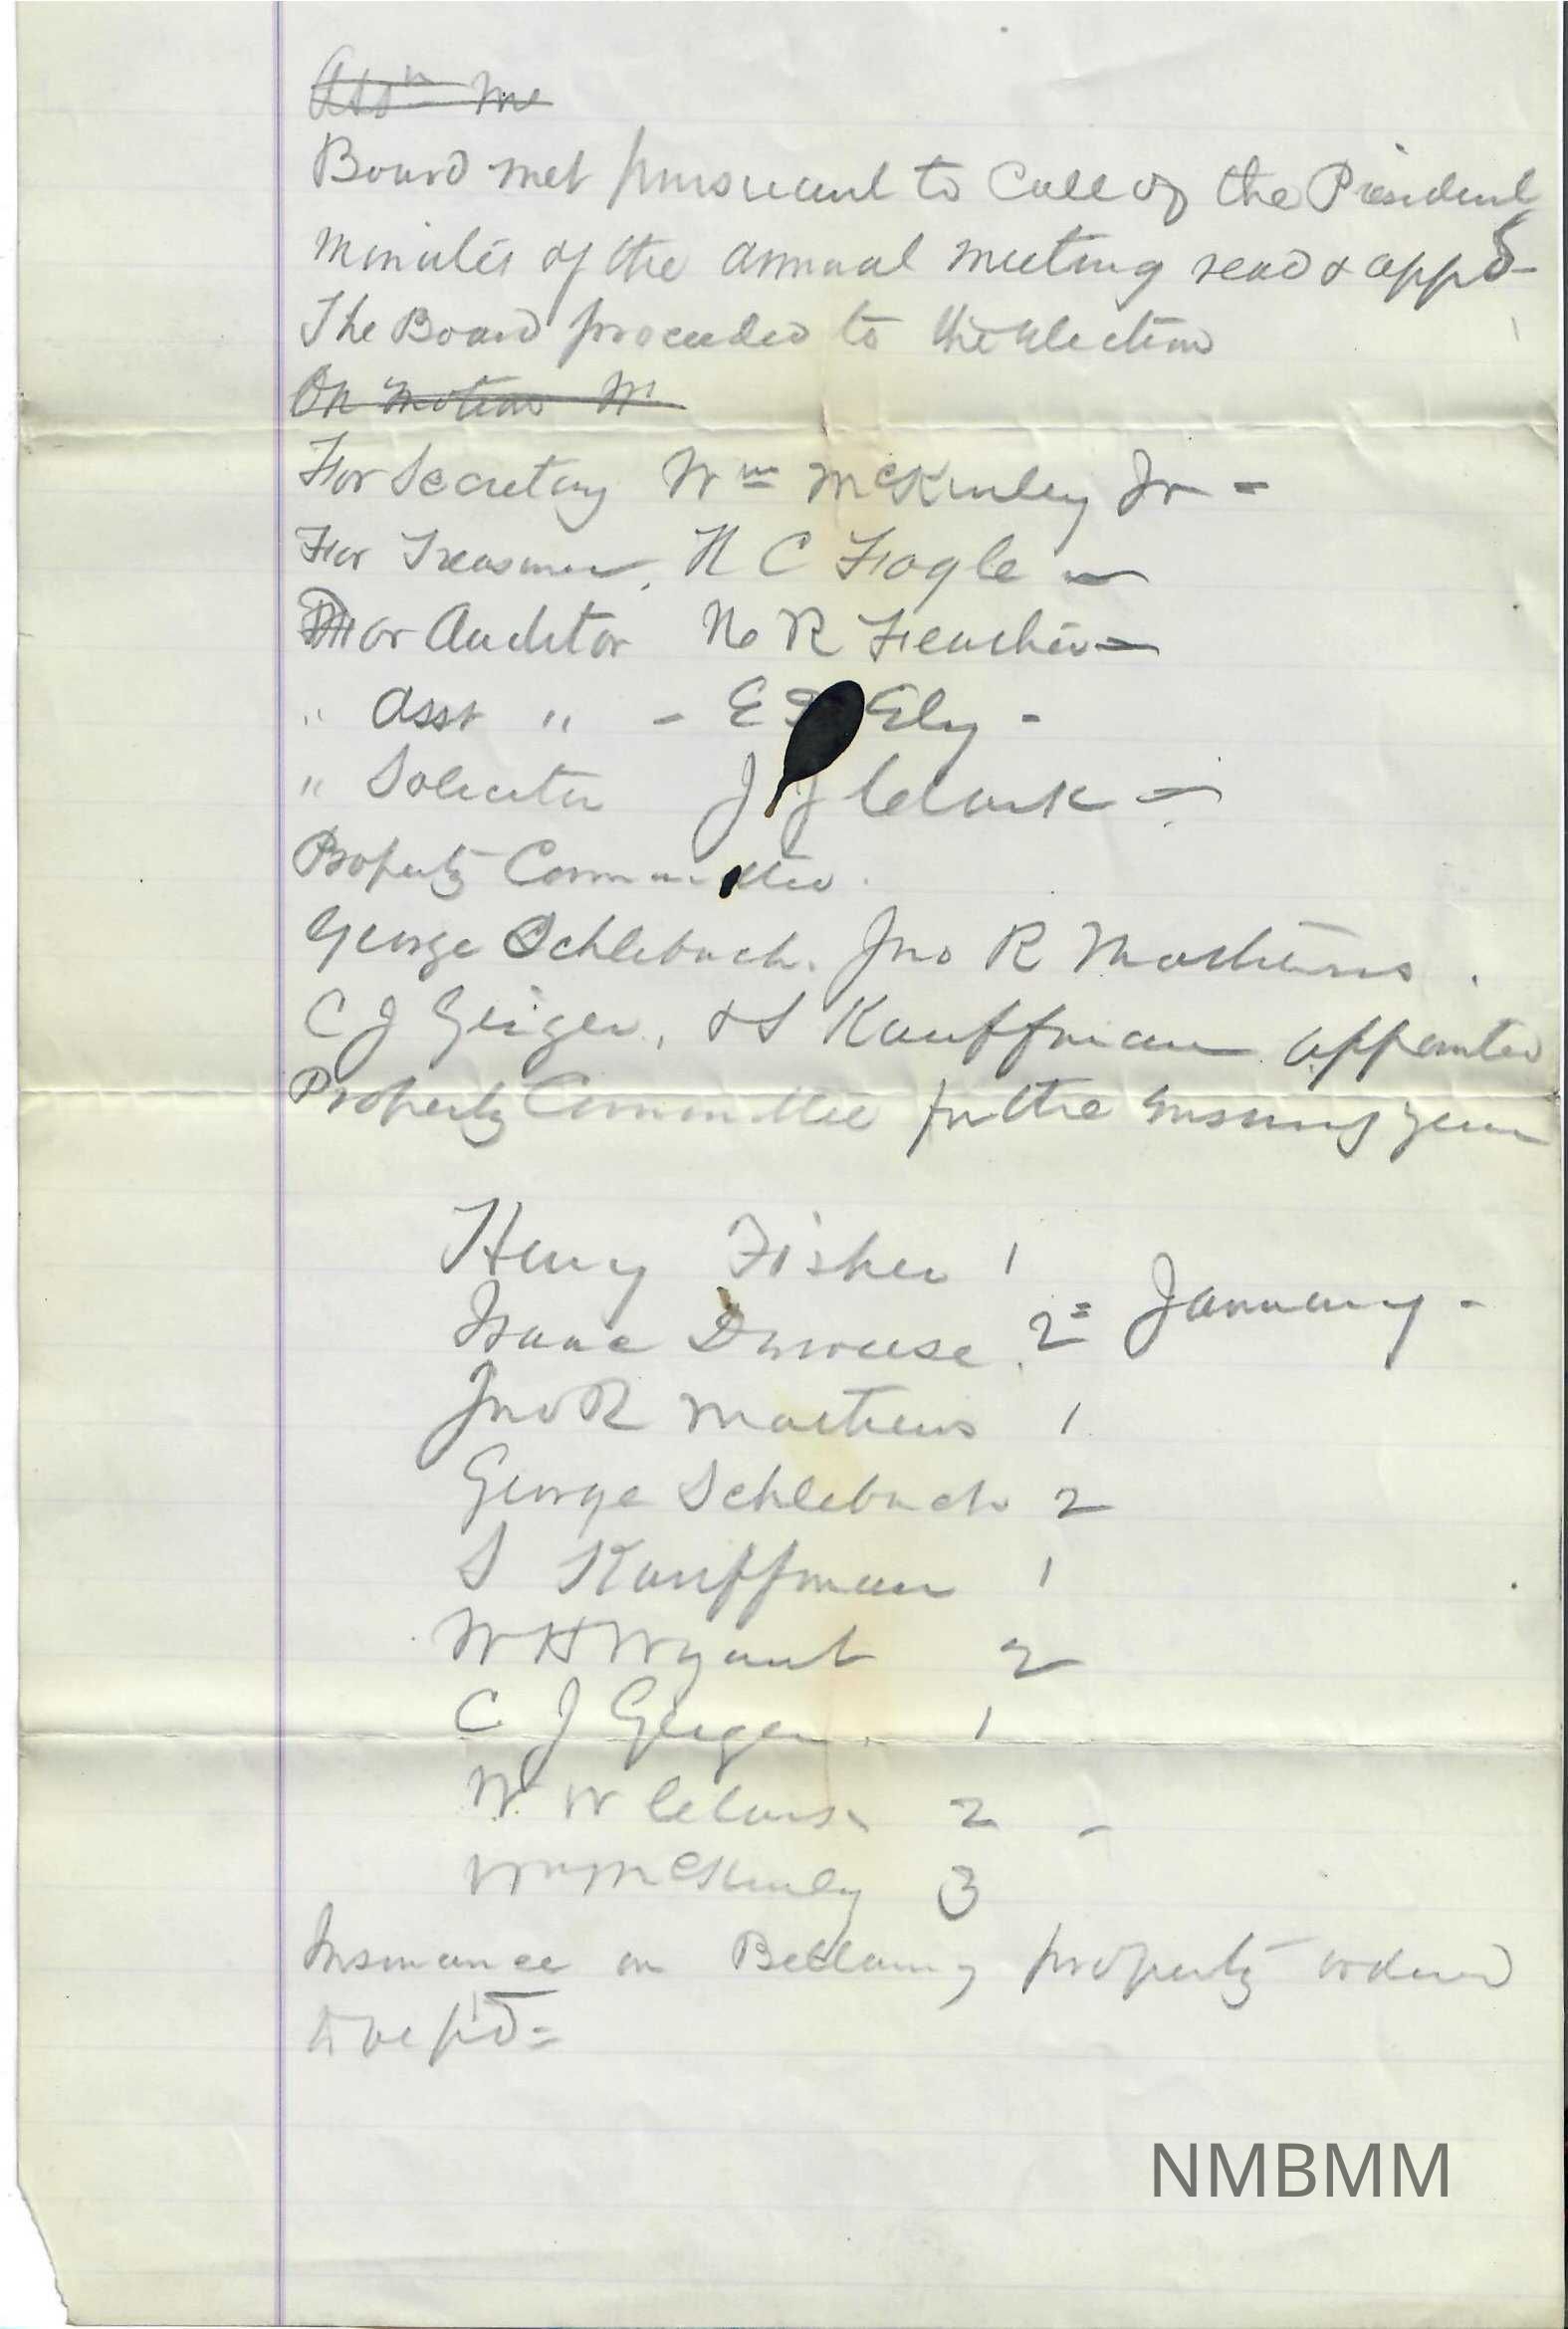 Ass<sup>n</sup> Me
Board met pursuant to Call of the President
Minutes of the annual meeting read & appd-
The Board proceeded to the election
On motion Mr
For Secretary Wm McKinley Jr -
For Treasurer, N C Fogle -
For Auditor No R Feather -
" Asst " - E Ely -
" Soliciter J J Clark -
Property Committee.
George Schlebach. Jno R Mathews.
C J Geiger, & S Kauffman appointed
Property Committee for the ensuing year
Henry Fisher 1
Isaac 2 = January -
Jno R Mathews 1
George Schlebach 2
S Kauffman 1
W H Wyant 2
C J Geiger. 1
W W Clark 2 -
Wm McKinley 3
Insurance on Bellamy property ordered
to be p'd =
NMBMM